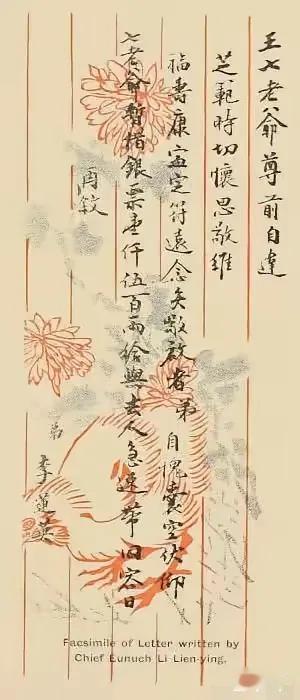 王七老爺尊前自違
芝範時切懷思敬維
福壽康寧定符遠念矣敬啟者弟自愧囊空伏仰
七老爺暫借銀票壹仟伍百兩給與去人急速帶回容日
再敘
弟李蓮英
Facsimile of Letter written by
Chief Eunuch Li Lien-ying.